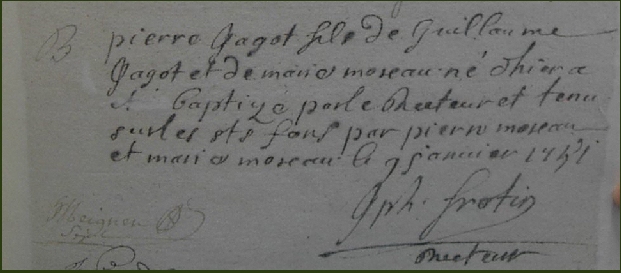 B pierre Gagot fils de Guillaume
Gagot et de marie moreau né d'hier a
eté baptizé par le Recteur et tenu
sur les sts fons par pierre moreau
et marie moreau le 9 janvier 1741
Jph. frotin
Meignen
Recteur